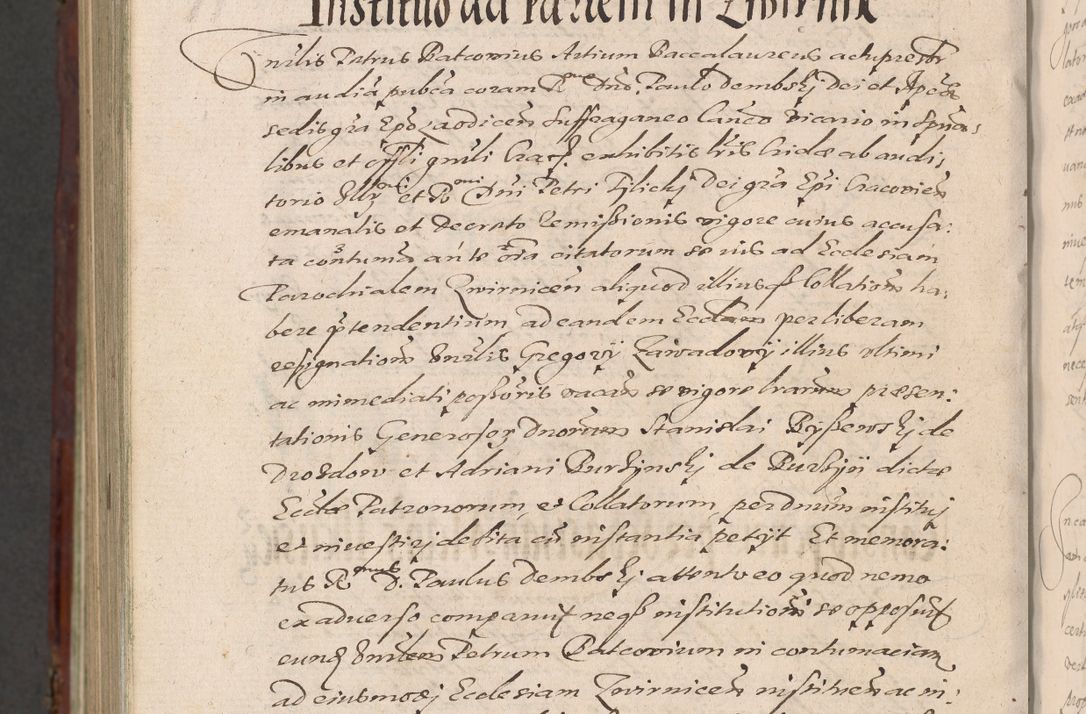 Institutio ad Paˑ in Zwirnik
Honlis Petrus Batcovius Artium Baccalaureus ac hu presbr
in audiā pub͞ca coram Rᵐᵒ Dn͞o Paulo Dembskj Dei et Apc͞æ
sedis gr͞a Ep͞o Laodicen͞ Suffraganeo Can͞co vicario in Sp͞ua:
libus et off͞li gn͞ali Crac͞. exhibitis lr͞is Cridæ ab audi,
torio Ill͞ᵐⁱ et Rᵐⁱ Dn͞i Petri Tylickj Dei gr͞a Ep͞i Cracovien͞
emanatis et Decreto remissionis vigore cuius accusa:
ta contuma͞ an͞te o͞ia citatorum se ius ad Ecclesiam
Parochialem Zwirnicen͞ aliquod illiusq͞ Collation͞ ha,
bere p͞tendentium, ad eandem Eccl͞am per liberam
resignation͞ Hon͞lis Gregorij Zawadowij illius vltimi
ac immediati poss͞oris vacan͞ se vigore l͞rarum præsen:
tationis Generosor͞ Dn͞orum Stanislai Bryssewskj de
Drozdow et Adriani Burzinskj de Burzijn dictæ
Eccl͞æ Patronorum, et Collatorum, per dn͞um institui
et inuestirj debita cu͞ instantia petijt Et memora:
tus Rᵐᵘˢ D. Paulus Dembskj attento eo quod nemo
ex aduerso comparuit neq͞ institutioni se opposuit
eund͞ Hon͞lem Petrum Batcovium in contumaciam
ad eiusmodj Ecclesiam Zwirnicen͞ instituen͞ ac in: